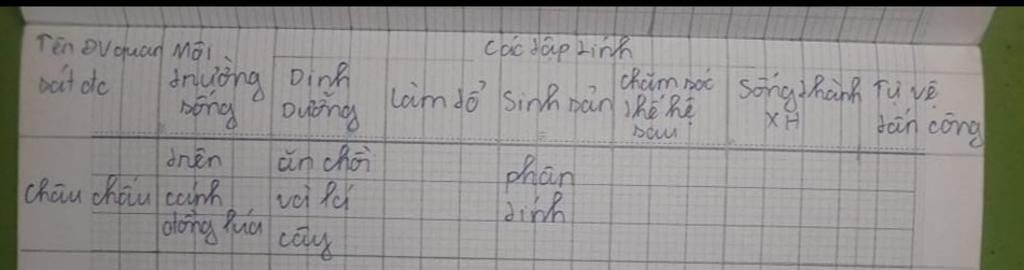 Tên ĐV quan sát đc
Môi trường sống
Các tập tính
Dinh Dưỡng
Làm tổ
Sinh sản
chăm sóc thế hệ sau
Sống thành XH
Tự vệ tấn công
Châu chấu
trên cánh đồng lúa
ăn chồi và lá cây
phân tính